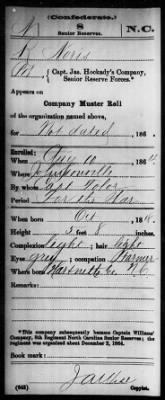 (Confederate.)
N 8 N.C.
Senior Reserves.
R Noris
Capt. Jas. Hockady's Company,
Senior Reserve Forces.*
Appears on
Company Muster Roll
of the organization named above,
for Not dated, 186 .
Enlisted:
When 10, 186
Where
By whom Capt
Period For the War
When born Oct 181
Height 5 feet 8 inches.
Complexion light; hair light
Eyes grey; occupation Farmer
Where born Harnett Co. N.C.
Remarks:
*This company subsequently became Captain Williams'
Company, 8th Regiment North Carolina Senior Reserves; the
regiment was organized about December 2, 1864.
Book mark:
(642)
Copyist.